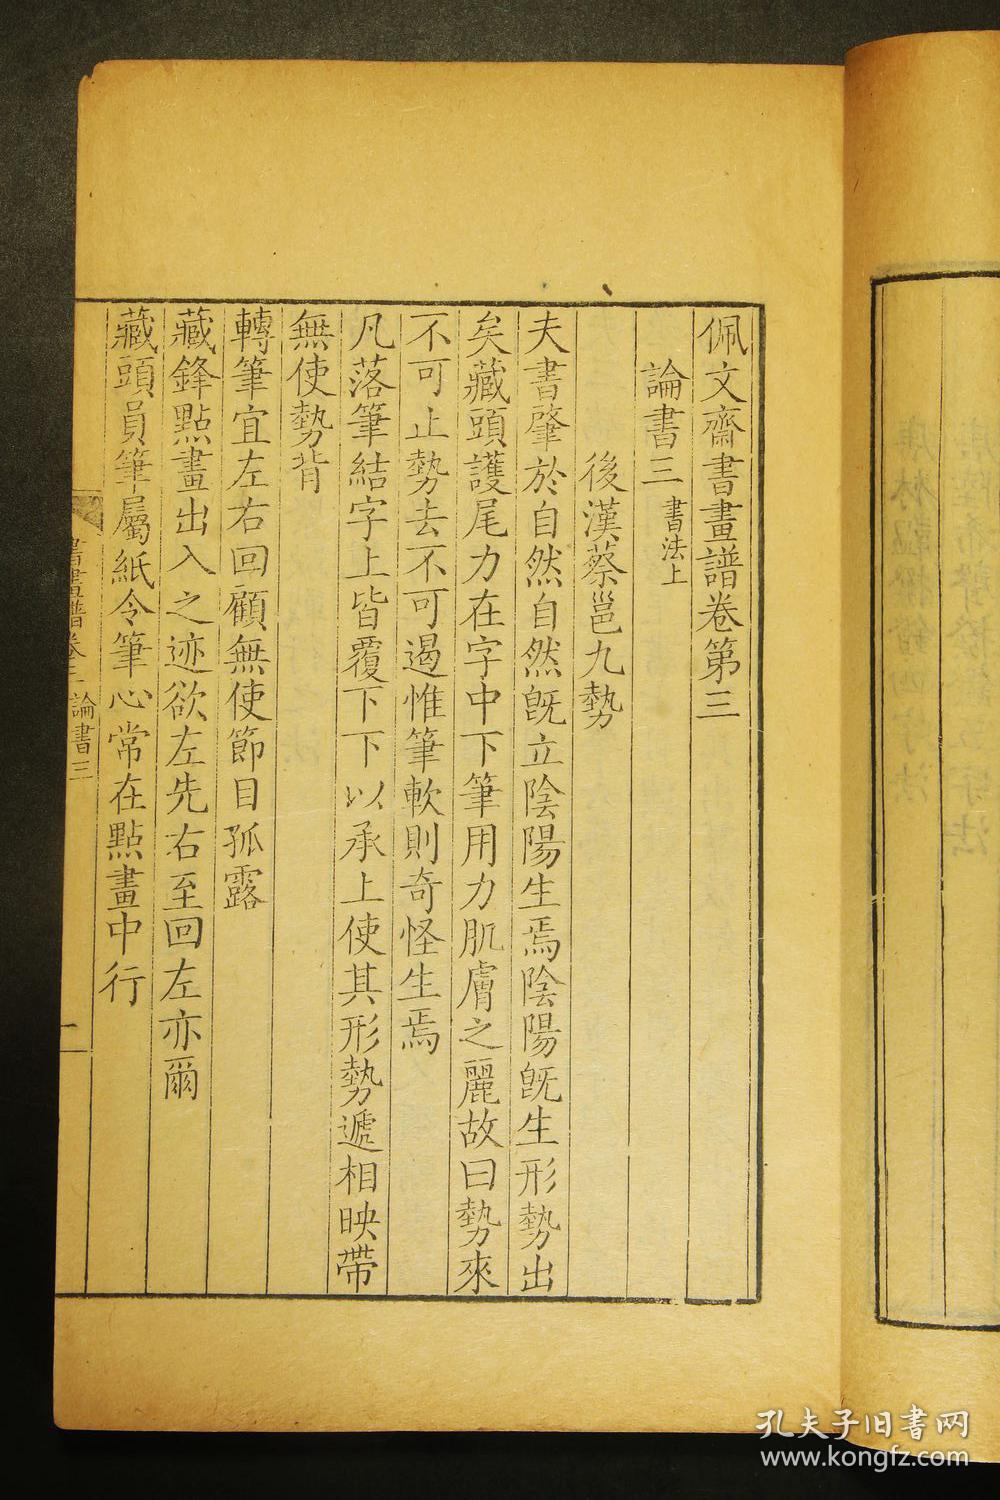 佩文齋書畫譜卷第三
論書三 書法上
後漢蔡邕九勢
夫書肇於自然自然既立陰陽生焉陰陽既生形勢出
矣藏頭護尾力在字中下筆用力肌膚之麗故曰勢來
不可止勢去不可遏惟筆軟則奇怪生焉
凡落筆結字上皆覆下下以承上使其形勢遞相映帶
無使勢背
轉筆宜左右回顧無使節目孤露
藏鋒點畫出入之迹欲左先右至回左亦爾
藏頭員筆屬紙令筆心常在點畫中行
書畫譜卷三 論書三
一
孔夫子旧书网
www.kongfz.com